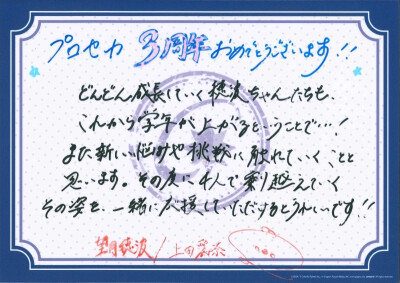 プロセカ 3周年 おめでとうございます!!
どんどん成長していく穂波ちゃんたちも、
これから学年が上がるということで…!
また新しい悩みや挑戦に触れていくことと
思います。その度に4人で乗り越えていく
その姿を、一緒に応援していただけるとうれしいです!!
望月穂波/上田麗奈